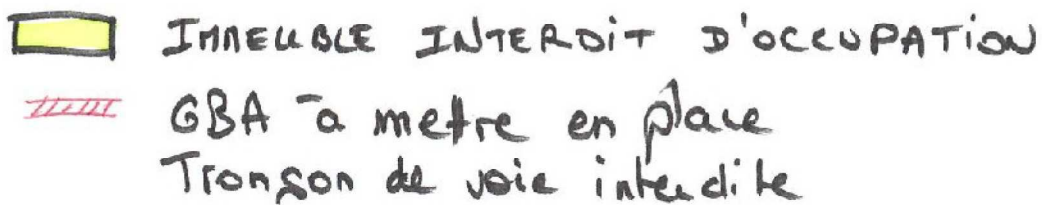 IMMEUBLE INTERDIT D'OCCUPATION
GBA à mettre en place
Tronçon de voie interdite